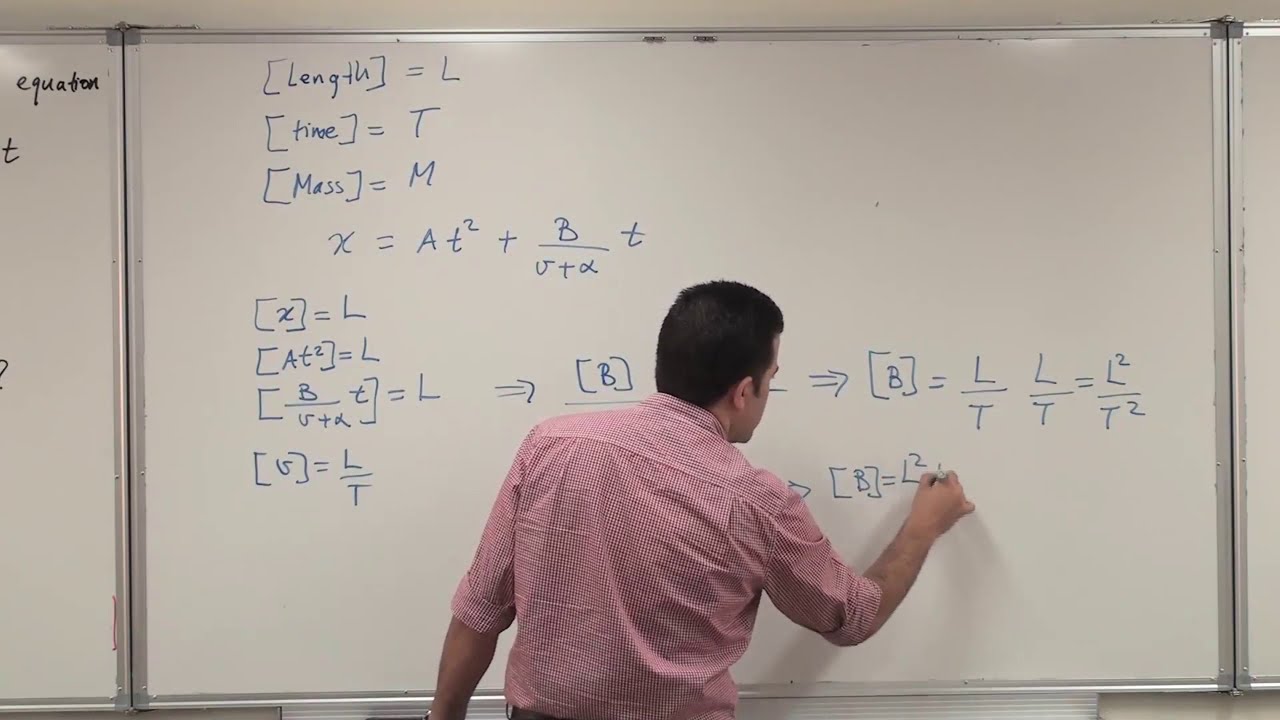 equation
t
?
[Length] = L
[time] = T
[Mass] = M
x = At² + B/(v+α) t
[x] = L
[At²] = L
[B/(v+α) t] = L ⇒ [B] L ⇒ [B] = L/T L/T = L²/T²
[v] = L/T
[B] = L²